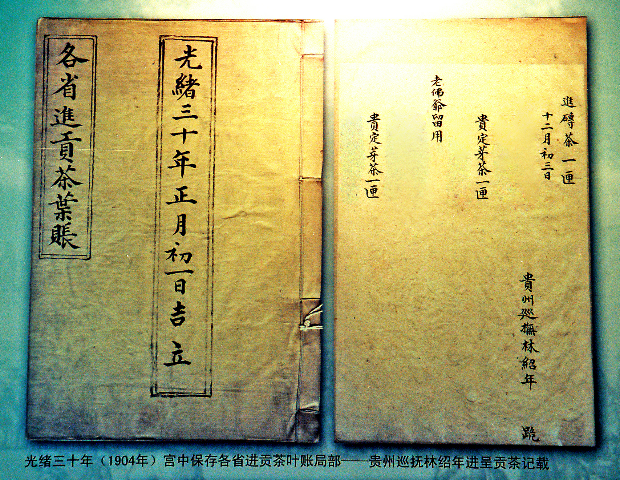 各省進貢茶葉賬
光緒三十年正月初一日吉立
進磚茶一匣
十二月初三日
貴州巡撫林紹年 跪
貴定芽茶一匣
老佛爺留用
貴定芽茶一匣
光绪三十年（1904年）宫中保存各省进贡茶叶账局部——贵州巡抚林绍年进呈贡茶记载